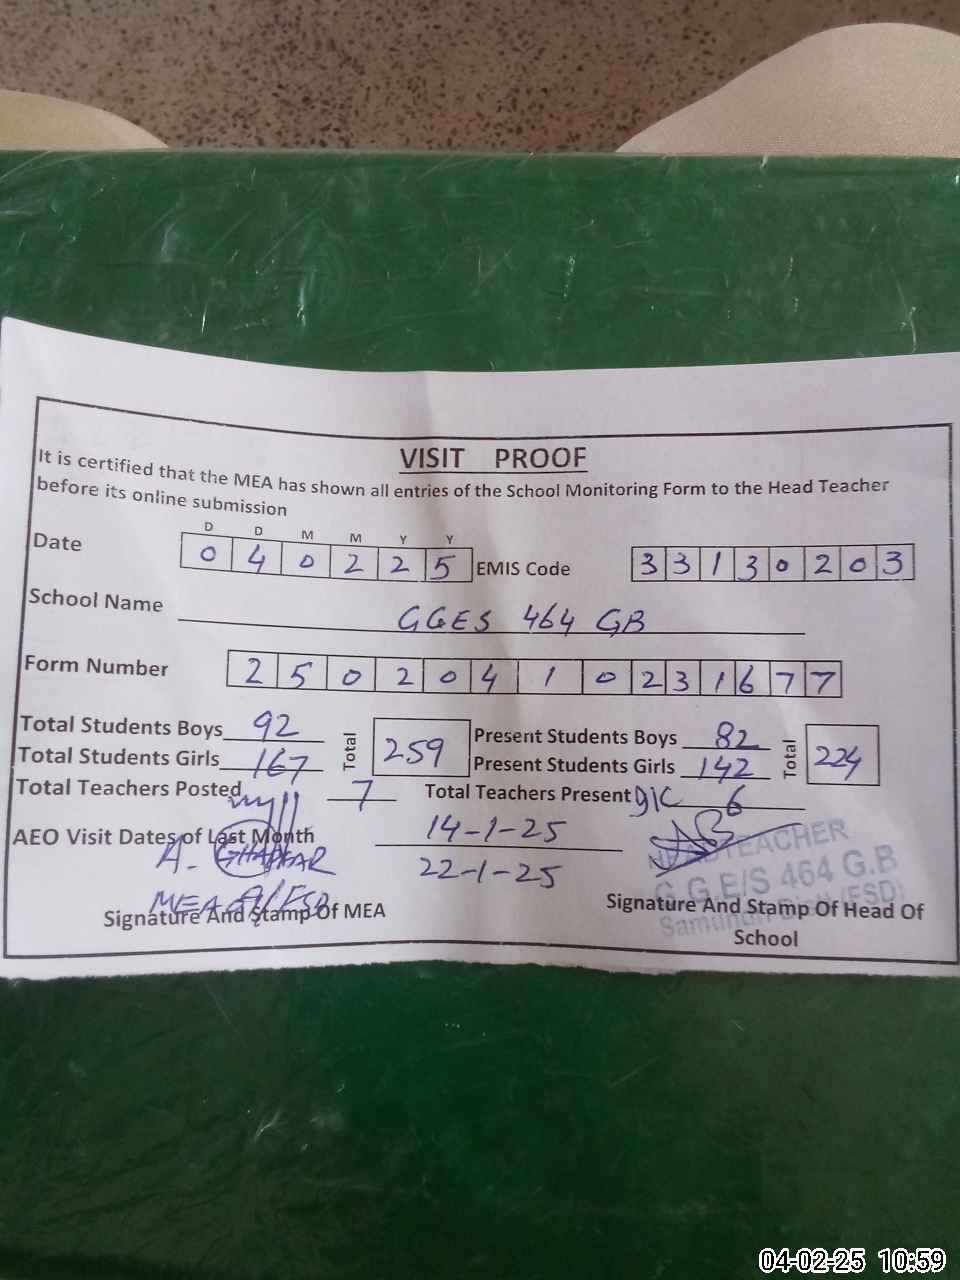 VISIT PROOF
It is certified that the MEA has shown all entries of the School Monitoring Form to the Head Teacher
before its online submission
D D M M Y Y
Date 0 4 0 2 2 5 EMIS Code 3 3 1 3 0 2 0 3
School Name GGES 464 GB
Form Number 2 5 0 2 0 4 1 0 2 3 1 6 7 7
Total Students Boys 92 Total 259 Present Students Boys 82 Total 224
Total Students Girls 167 Present Students Girls 142
Total Teachers Posted 7 Total Teachers Present 6
AEO Visit Dates of Last Month 14-1-25
22-1-25
A. GHAFFAR
MEA
Signature And Stamp Of MEA
HEADTEACHER
G.G.E/S 464 G.B
(FSD)
Signature And Stamp Of Head Of
School
04-02-25 10:59